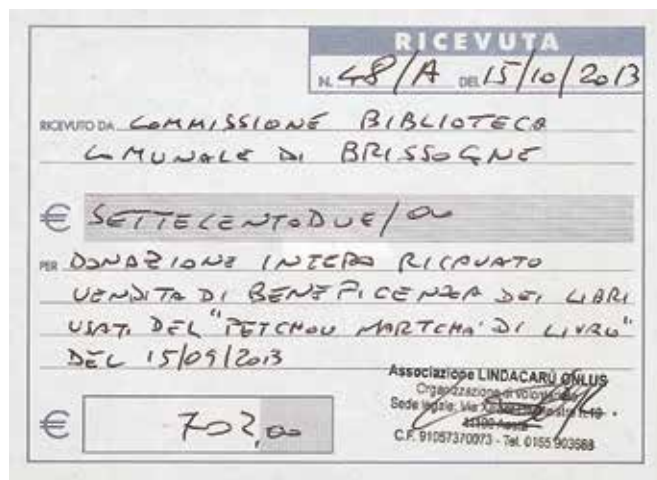 RICEVUTA
N. 48/A DEL 15/10/2013
RICEVUTO DA COMMISSIONE BIBLIOTECA
COMUNALE DI BRISSOGNE
€ SETTECENTODUE/00
PER DONAZIONE INTERO RICAVATO
VENDITA DI BENEFICENZA DEI LIBRI
USATI DEL "PETCHOU MARTCHA' DI LIVRO"
DEL 15/09/2013
Associazione LINDACARÙ ONLUS
Organizzazione di volontariato
Sede legale: Via
11100 Aosta
C.F. 91057370073 - Tel. 0165 903568
€ 702,00